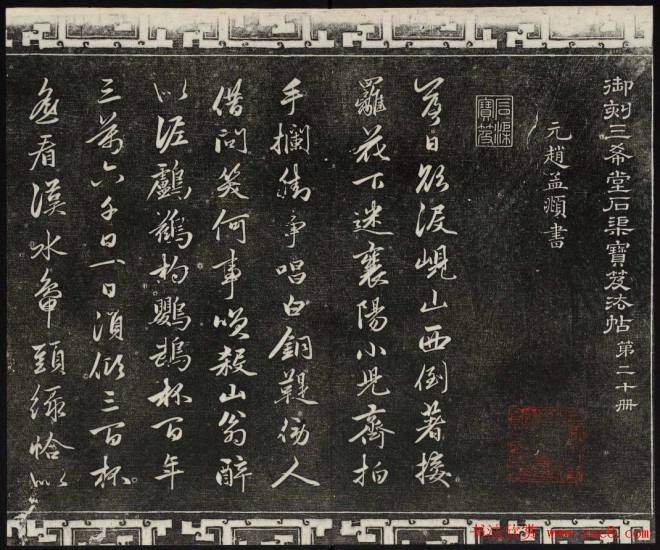 御刻三希堂石渠寶笈法帖 第二十册
元趙孟頫書
石渠寶笈
落日欲没峴山西倒著接
䍦花下迷襄陽小兒齊拍
手攔街爭唱白銅鞮傍人
借問笑何事笑殺山翁醉
似泥鸕鷀杓鸚鵡杯百年
三萬六千日一日須傾三百杯
遙看漢水鴨頭綠恰似
书法欣赏
www.yac8.com